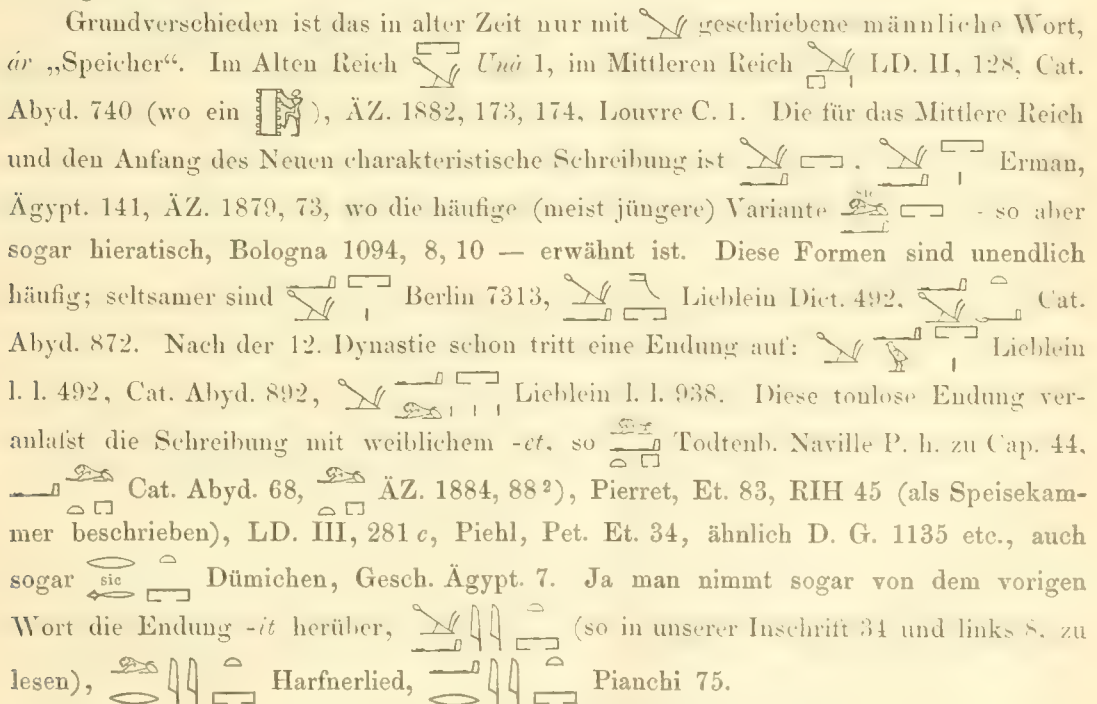 Grundverschieden ist das in alter Zeit nur mit geschriebene männliche Wort,
ár „Speicher“. Im Alten Reich Unå 1, im Mittleren Reich LD. II, 128, Cat.
Abyd. 740 (wo ein ), ÄZ. 1882, 173, 174, Louvre C. 1. Die für das Mittlere Reich
und den Anfang des Neuen charakteristische Schreibung ist , Erman,
Ägypt. 141, ÄZ. 1879, 73, wo die häufige (meist jüngere) Variante - so aber
sogar hieratisch, Bologna 1094, 8, 10 — erwähnt ist. Diese Formen sind unendlich
häufig; seltsamer sind Berlin 7313, Lieblein Dict. 492, Cat.
Abyd. 872. Nach der 12. Dynastie schon tritt eine Endung auf: Lieblein
l. l. 492, Cat. Abyd. 892, Lieblein l. l. 938. Diese tonlose Endung ver-
anlaſst die Schreibung mit weiblichem -et, so Todtenb. Naville P. h. zu Cap. 44,
Cat. Abyd. 68, ÄZ. 1884, 88²), Pierret, Et. 83, RIH 45 (als Speisekam-
mer beschrieben), LD. III, 281 c, Piehl, Pet. Et. 34, ähnlich D. G. 1135 etc., auch
sogar sic Dümichen, Gesch. Ägypt. 7. Ja man nimmt sogar von dem vorigen
Wort die Endung -it herüber, (so in unserer Inschrift 34 und links 8. zu
lesen), Harfnerlied, Pianchi 75.